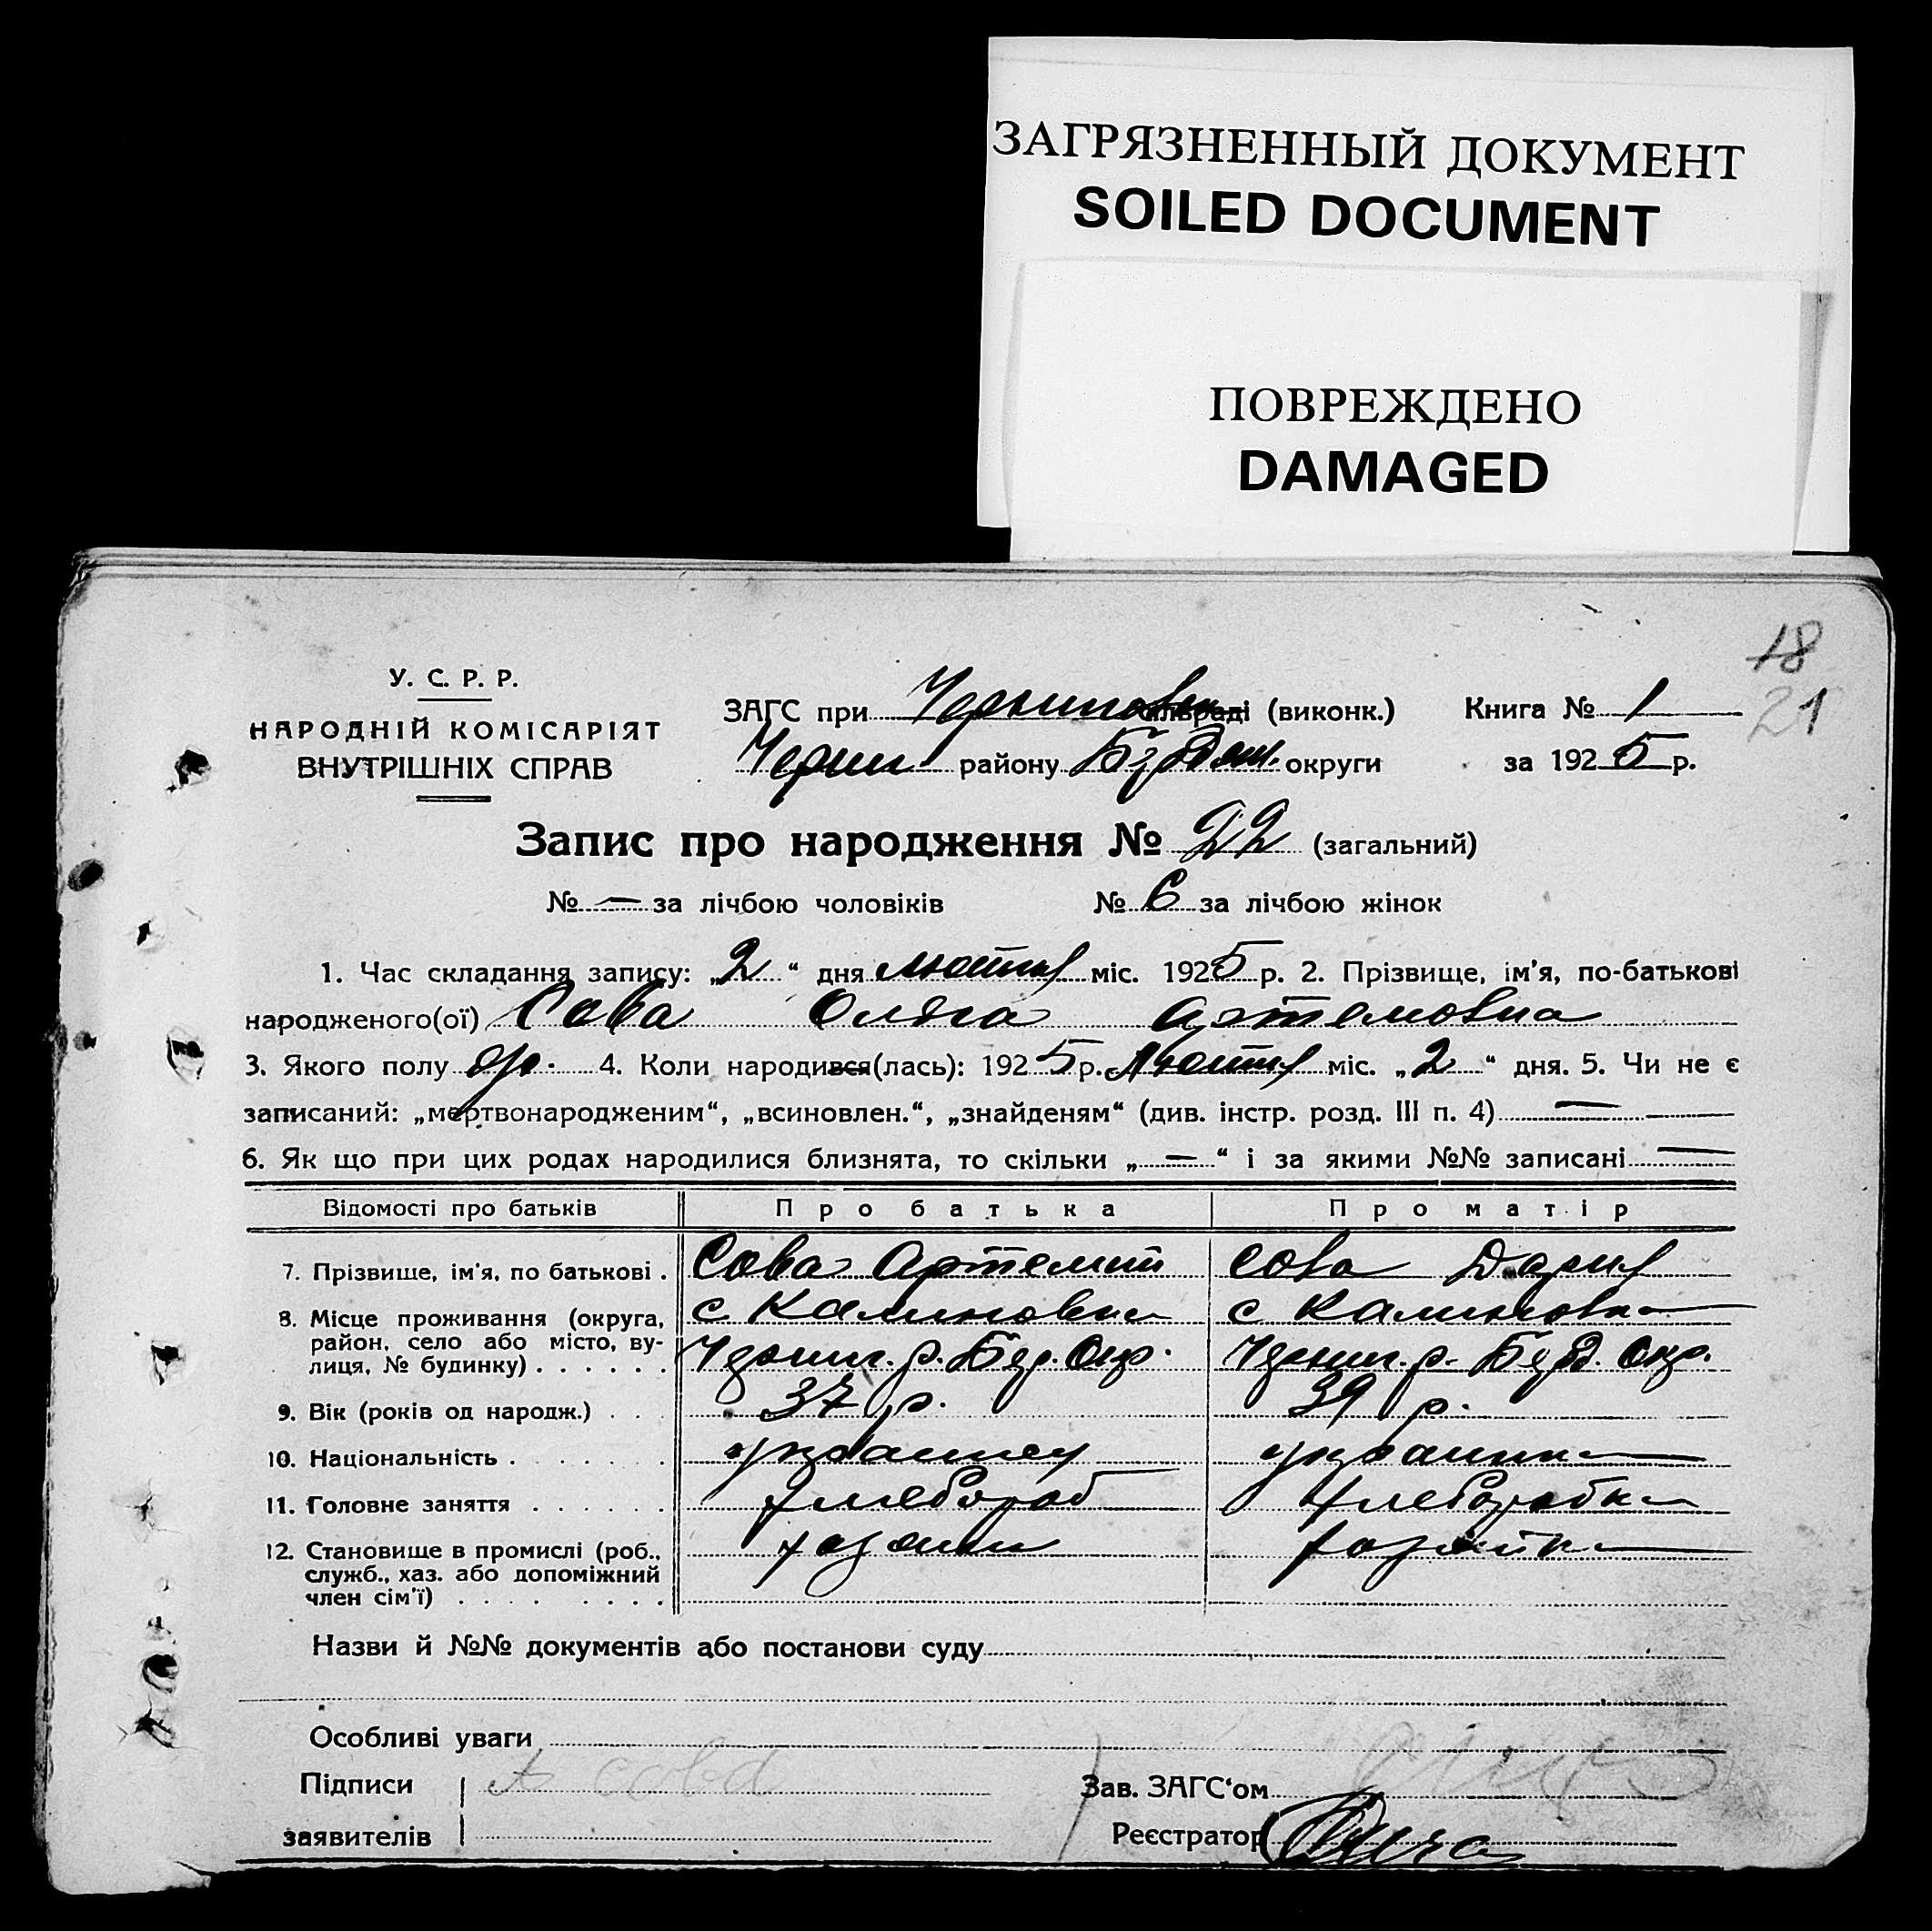 ЗАГРЯЗНЕННЫЙ ДОКУМЕНТ
SOILED DOCUMENT
ПОВРЕЖДЕНО
DAMAGED
18
21
У. С. Р. Р.
НАРОДНІЙ КОМІСАРІЯТ
ВНУТРІШНІХ СПРАВ
ЗАГС при сільраді (виконк.) Книга № 1
району округи за 1925 р.
Запис про народження № 22 (загальний)
№ — за лічбою чоловіків № 6 за лічбою жінок
1. Час складання запису: „2“ дня лютий міс. 1925 р. 2. Прізвище, ім'я, по-батькові
народженого(ої) Сова Ольга Артемовна
3. Якого полу 4. Коли народився(лась): 1925 р. Лютий міс. „2“ дня. 5. Чи не є
записаний: „мертвонародженим“, „всиновлен.“, „знайденям“ (див. інстр. розд. III п. 4) —
6. Як що при цих родах народилися близнята, то скільки „—“ і за якими №№ записані —
Відомості про батьків Про батька Про матір
7. Прізвище, ім'я, по батькові . Сова Артемий Сова Дария
8. Місце проживання (округа, район, село або місто, вулиця, № будинку) . . . . . . с Калиновка с Калиновка
р. Бер. Окр. р. Берд. Окр.
9. Вік (років од народж.) . . . 37 р. 39 р.
10. Національність . . . . . . . украинец украинка
11. Головне заняття . . . . . . хлебороб хлеборобка
12. Становище в промислі (роб., служб., хаз. або допоміжний член сім'ї) . . . . . . . . хозяин хозяйка
Назви й №№ документів або постанови суду
Особливі уваги
Підписи А сова Зав. ЗАГС'ом
заявителів Реєстратор